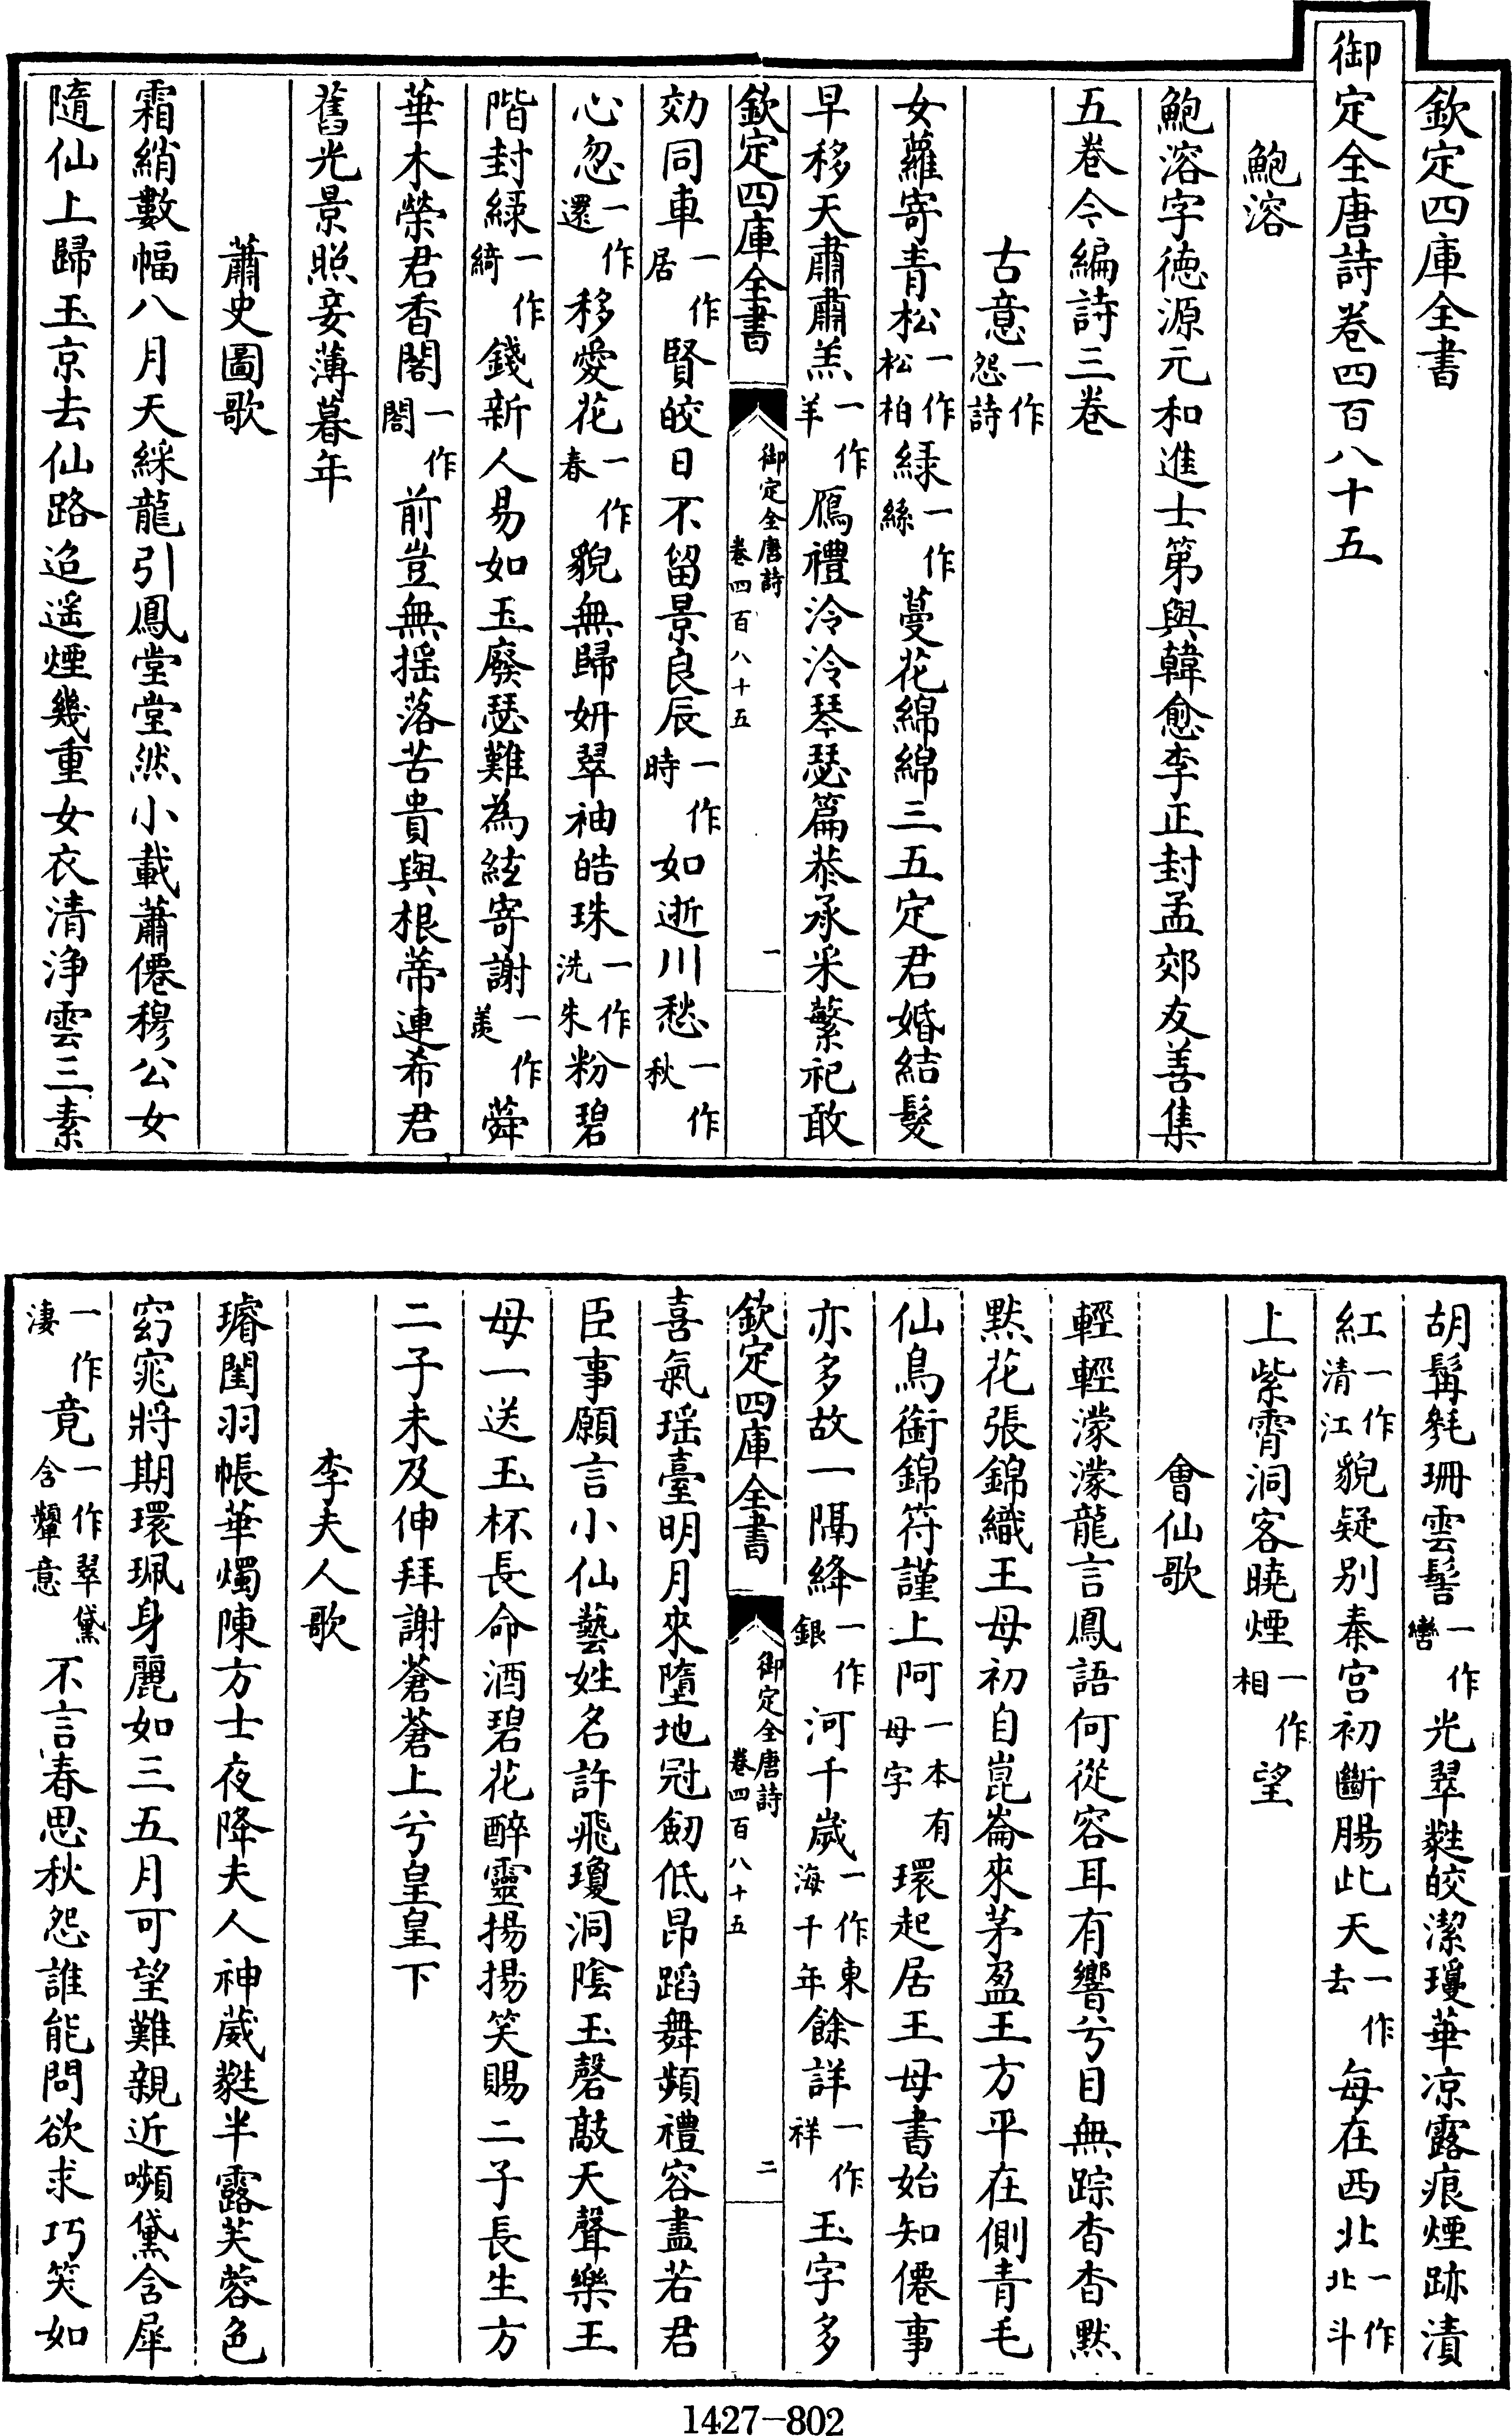 欽定四庫全書
御定全唐詩卷四百八十五
鮑溶
鮑溶字德源元和進士第與韓愈李正封孟郊友善集
五卷今編詩三卷
古意一作怨詩
女蘿寄青松一作松柏綠一作絲蔓花綿綿三五定君婚結髮
早移天肅肅羔一作羊鴈禮泠泠琴瑟篇恭承采蘩祀敢
欽定四庫全書
御定全唐詩
卷四百八十五
一
効同車一作居賢皎日不留景良辰一作時如逝川愁一作秋
心忽一作還移愛花一作春貌無歸妍翠袖皓珠一作洗朱粉碧
階封綠一作綺錢新人易如玉廢瑟難為絃寄謝一作羨蕣
華木榮君香閣一作閤前豈無揺落苦貴與根蒂連希君
舊光景照妾薄暮年
蕭史圖歌
霜綃數幅八月天綵龍引鳳堂堂然小載蕭僊穆公女
隨仙上歸玉京去仙路迢遥煙幾重女衣清浄雲三素
胡髯毿珊雲髻一作鬢光翠蕤皎潔瓊華涼露痕煙跡漬
紅一作清江貌疑別秦宮初斷腸此天一作去每在西北一作北斗
上紫霄洞客曉煙一作相望
會仙歌
輕輕濛濛龍言鳳語何從容耳有響兮目無踪杳杳默
默花張錦織王母初自崑崙來茅盈王方平在側青毛
仙鳥銜錦符謹上阿一本有母字環起居王母書始知僊事
亦多故一隔絳一作銀河千歲一作東海千年餘詳一作祥玉字多
欽定四庫全書
御定全唐詩
卷四百八十五
二
喜氣瑶臺明月來墮地冠劒低昂蹈舞頻禮容盡若君
臣事願言小仙藝姓名許飛瓊洞陰玉磬敲天聲樂王
母一送玉杯長命酒碧花醉靈揚揚笑賜二子長生方
二子未及伸拜謝蒼蒼上兮皇皇下
李夫人歌
璿閨羽帳華燭陳方士夜降夫人神葳蕤半露芙蓉色
窈窕將期環珮身麗如三五月可望難親近嚬黛含犀
一作淒竟一作翠黛含顰意不言春思秋怨誰能問欲求巧笑如
1427-802